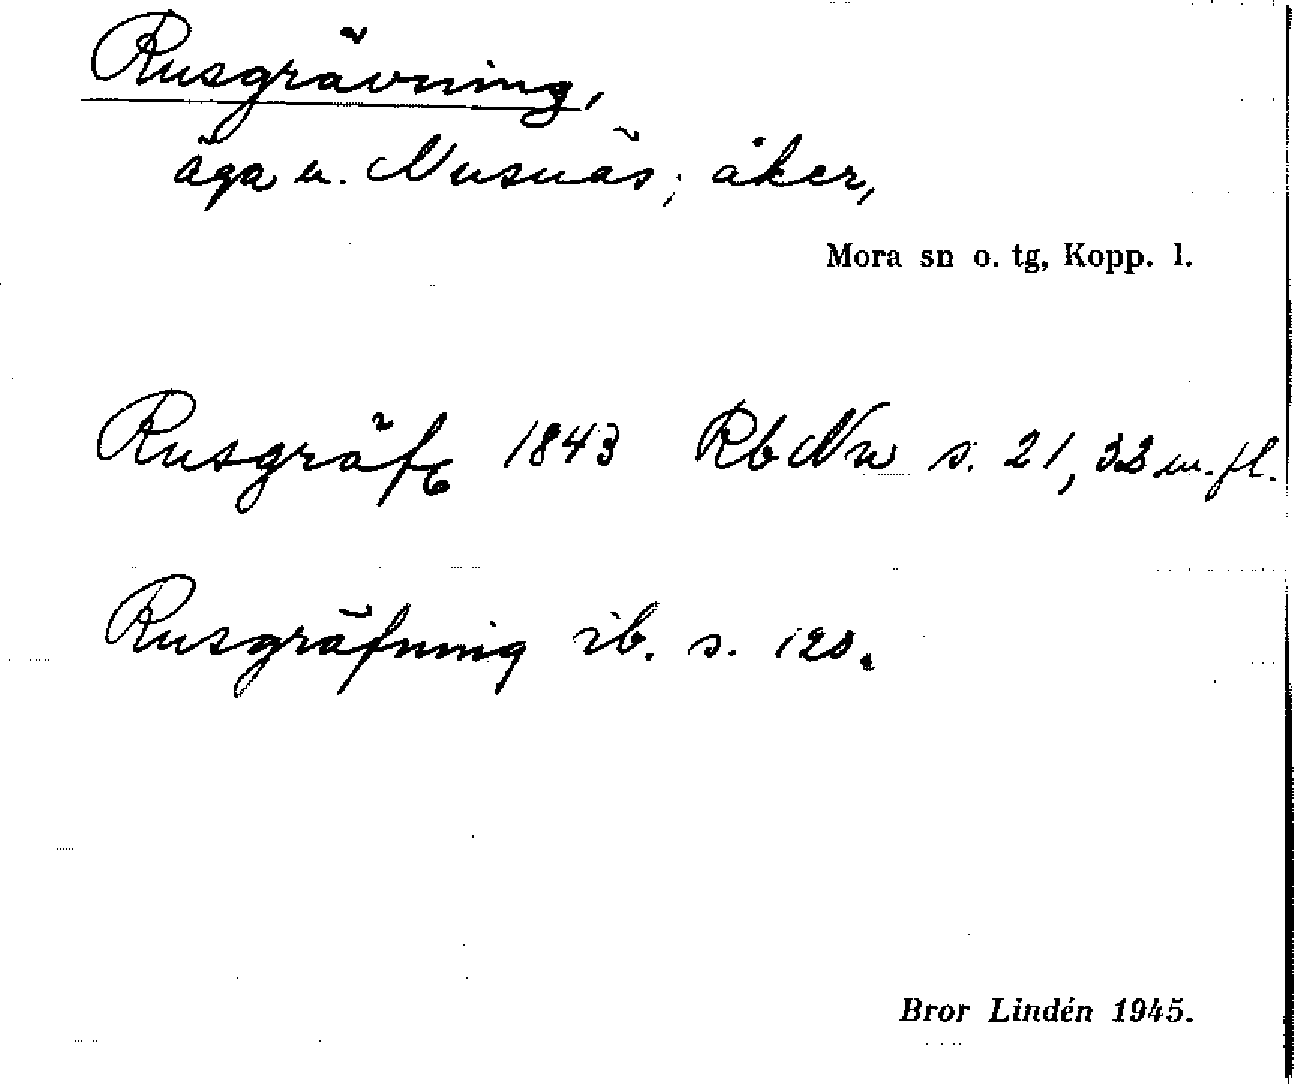 Rusgrävning,
äga u. Nusnäs; åker,
Mora sn o. tg, Kopp. l.
Rusgräf 1843 Rb Nu s. 21, 32 m. fl.
Rusgräfning ib. s. 120.
Bror Lindén 1945.